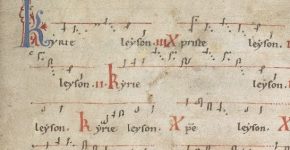 Kyrie leyson. iii Xpriste leyson. ii
leyson. ii. Kyrie
leyson. Kyrie leyson. Xpe leyson.